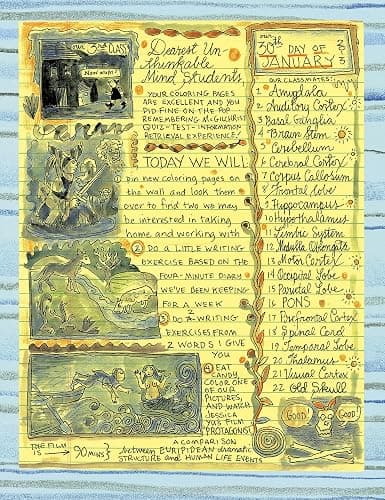 OUR 3rd CLASS
Now what?
Dearest Un-
thinkable
Mind Students,
YOUR COLORING PAGES
ARE EXCELLENT AND YOU
DID FINE ON THE POP
REMEMBERING McGILCHRIST
QUIZ-TEST-INFORMATION
RETRIEVAL EXPERIENCE!
TODAY WE WILL
pin new coloring pages on
the wall and look them
over to find two we may
be interested in taking
home and working with
2 DO A LITTLE WRITING
EXERCISE BASED ON THE
FOUR-MINUTE DIARY
WE'VE BEEN KEEPING
FOR A WEEK
3 DO 2 WRITING
EXERCISES FROM
2 WORDS I GIVE
YOU
4 EAT
CANDY
COLOR ONE
OF OUR
PICTURES,
AND WATCH
JESSICA
YU'S FILM
PROTAGONIST
THE FILM
IS → 90 MINS
A COMPARISON
between EURIPIDEAN dramatic
STRUCTURE and HUMAN LIFE EVENTS
30th DAY OF
JANUARY
OUR CLASSMATES:
1 Amygdala
2 Auditory Cortex
3 Basal Ganglia
4 Brain Stem
Cerebellum
6 Cerebral Cortex
7 Corpus Callosum
8 Frontal Lobe
9 Hippocampus
10 Hypothalamus
11 Limbic System
12 Medulla Oblongata
13 Motor Cortex
14 Occipital Lobe
15 Parietal Lobe
16 PONS
17 Prefrontal Cortex
18 Spinal Cord
19 Temporal Lobe
20 Thalamus
21 Visual Cortex
22 Old Skull
GOOD!
GOOD!